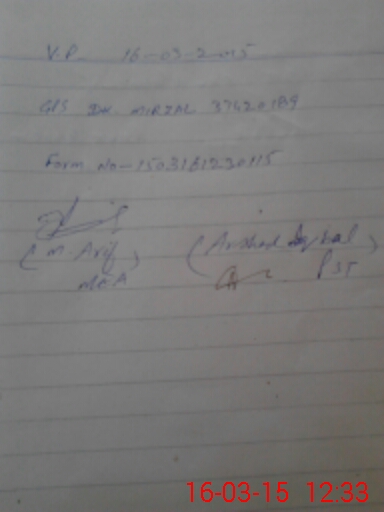 V.P. 16-03-2015
GPS DK. MIRZAL 37420189
Form No-1503161230115
(M. Arif)
(Arshad Iqbal)
MEA
PST
16-03-15 12:33